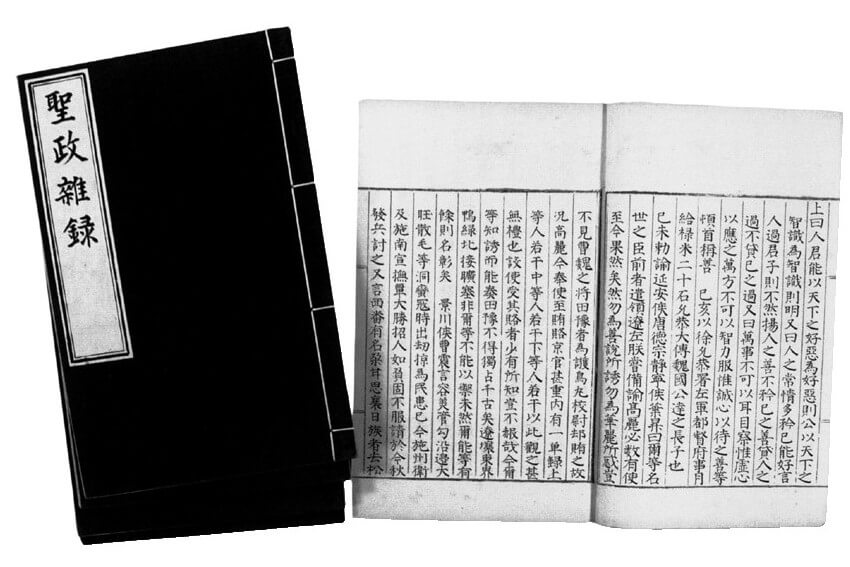 聖政雜録
上曰人君能以天下之好惡為好惡則公以天下之
智識為智識則明又曰人之常情多矜已能好言
人過君子則不然揚人之善不矜已之善貸人之
過不貸已之過又曰萬事不可以耳目察惟虛心
以應之萬方不可以智力服惟誠心以待之善等
頓首稱善 己亥以徐允恭署左軍都督府事月
給祿米二十石允恭大傅魏國公達之長子也
已未勅諭延安侯唐德宗靜寧侯葉昇曰爾等名
世之臣前者遣領遼左朕嘗備諭高麗必數有使
至今果然矣然勿為善說所誘勿為華麗所惑豈
不見曹魏之將田豫者為護烏丸校尉却賄之故
況高麗令奏使至賄賂京官甚重內有一單録上
等人若干中等人若干下等人若干以此觀之甚
無禮也設使受其賂者少有所知豈不報哉今爾
等知誘而能奏田豫不得獨占千古矣遼壤東界
鴨綠北接曠塞非爾等不能以禦未然爾能等有
餘則名彰矣 景川侯曹震言容美管勾沿邊大
旺散毛等洞蠻時出刼掠為民患已令施州衛
及施南宣撫覃大勝招人如負固不服請於今秋
發兵討之又言西番有名蔡甘思襄日族者去松